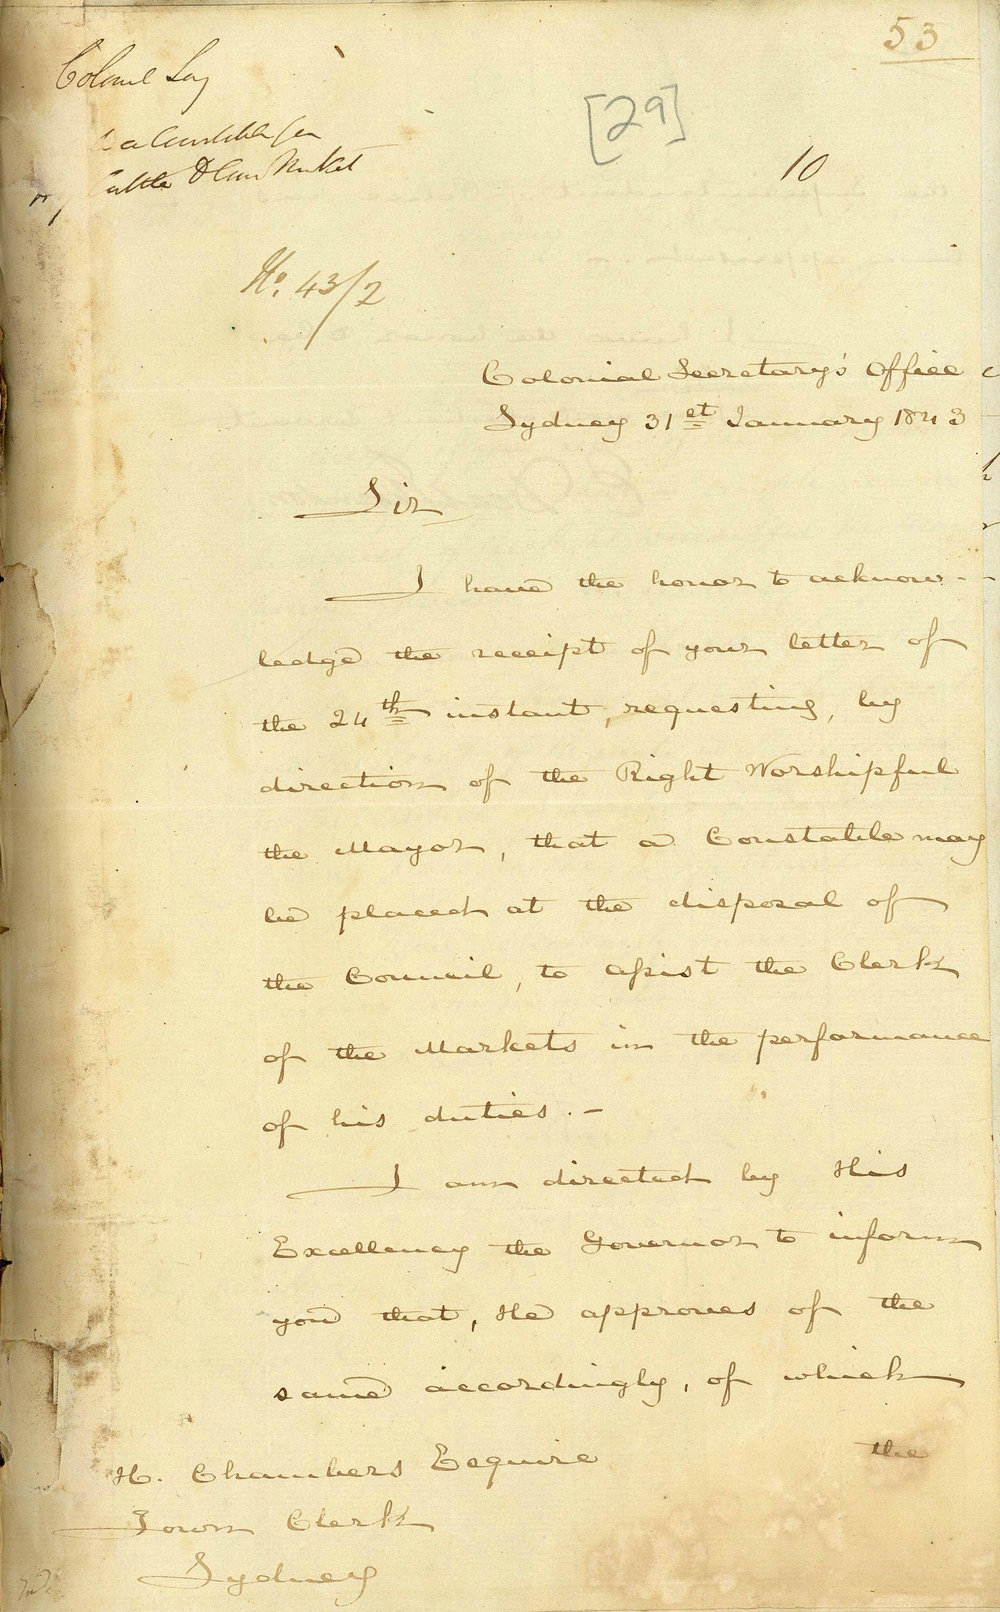 53
Colonel Sey
[29]
a Constable for
Cattle & Corn Market
10
No. 43/2
Colonial Secretary's Office
Sydney 31st January 1843
Sir
I have the honor to acknow-
ledge the receipt of your letter of
the 24th instant, requesting, by
direction of the Right Worshipful
the Mayor, that a Constable may
be placed at the disposal of
the Council, to assist the Clerk
of the Markets in the performance
of his duties. -
I am directed by His
Excellency the Governor to inform
you that, He approves of the
same accordingly, of which
the
H. Chambers Esquire
Town Clerk
Sydney